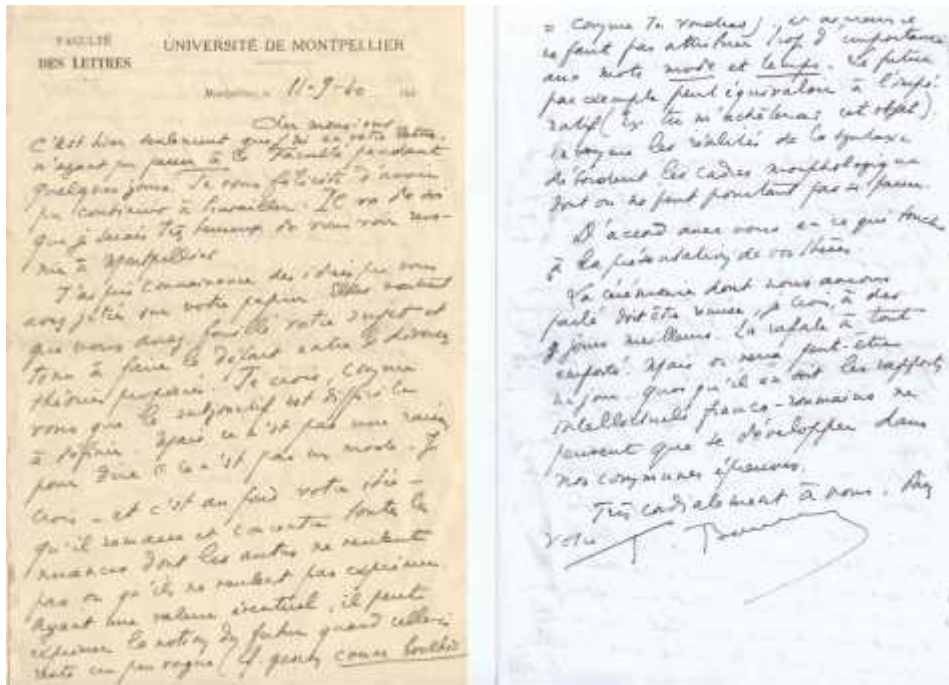 FACULTÉ
DES LETTRES
UNIVERSITÉ DE MONTPELLIER
Montpellier, le 11-9-40
Cher monsieur
C'est bien seulement que j'ai eu votre lettre,
n'ayant pu passer à la Faculté pendant
quelques jours. Je vous félicite d'avoir
pu continuer à travailler. Il va de soi
que je serais très heureux de vous voir reve-
nir à Montpellier
J'ai pris connaissance des idées que vous
avez jetées sur votre papier. Elles montrent
que vous avez fouillé votre sujet et
tenu à faire le départ entre les diverses
théories proposées. Je crois, comme
vous que le subjonctif est difficile
à définir. Mais ce n'est pas une raison
pour dire : ce n'est pas un mode. Je
crois - et c'est au fond votre idée -
qu'il ramasse et concentre toutes les
nuances dont les autres ne veulent
pas ou qu'ils ne veulent pas exprimer.
Ayant une valeur éventuel, il peut
exprimer la notion du futur quand celle-ci
reste un peu vague (cf. gascon coumo boulhes
= comme tu voudras)
ne faut pas attribuer trop d'importance
aux mots mode et temps. Le futur
par exemple peut équivaloir à l'impé-
ratif (Ex tu m'achèteras cet objet).
les réalités de la syntaxe
débordent les cadres morphologiques
dont on ne peut pourtant pas se passer.
D'accord avec vous en ce qui touche
à la présentation de vos thèses.
La cérémonie dont nous avons
parlé doit être remise, je crois, à des
jours meilleurs. La rafale a tout
emporté. Mais on verra peut-être
un jour. Quoi qu'il en soit les rapports
intellectuels franco-roumains ne
peuvent que se développer dans
nos communes épreuves.
Très cordialement à vous.
votre